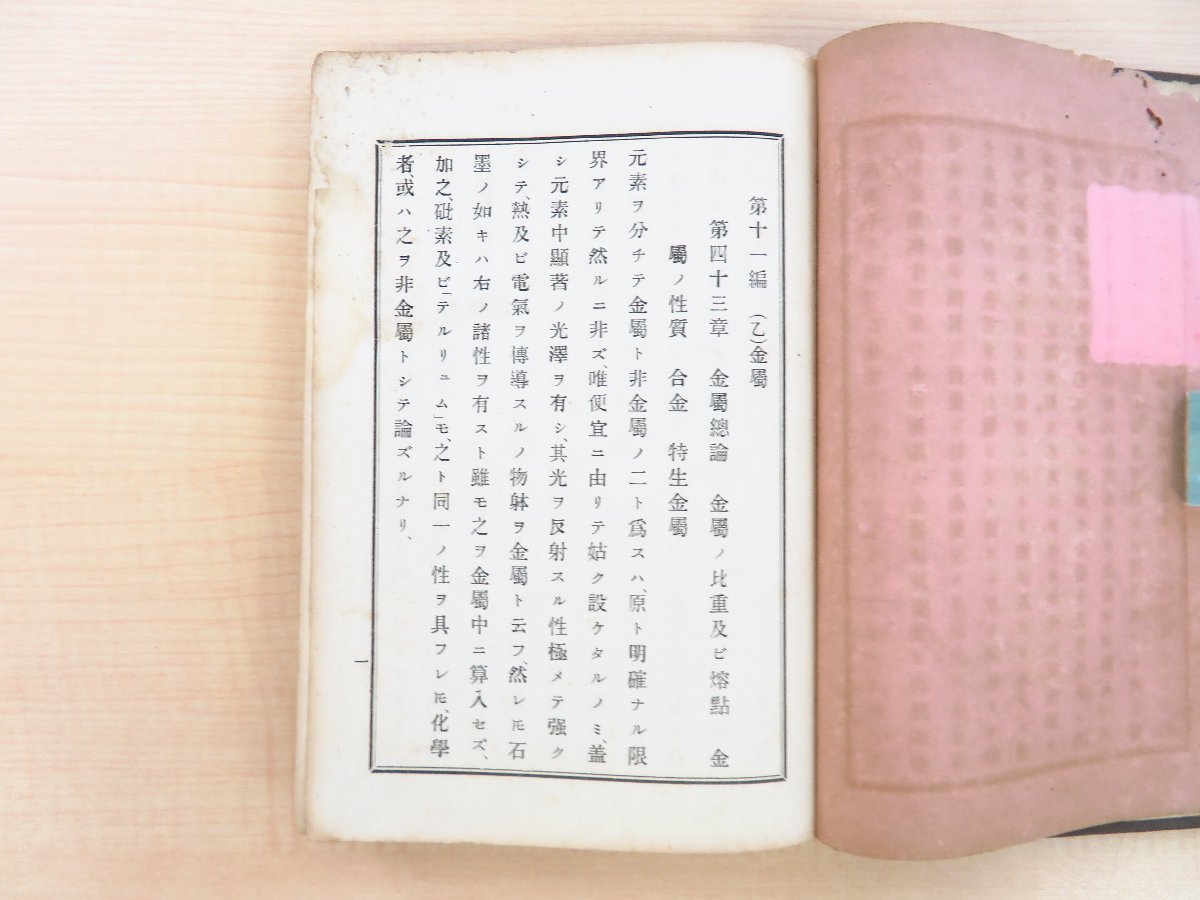 第十一編　(乙)金屬
第四十三章　金屬總論　金屬ノ比重及ビ熔點　金
屬ノ性質　合金　特生金屬
元素ヲ分チテ金屬ト非金屬ノ二ト爲スハ、原ト明確ナル限
界アリテ然ルニ非ズ、唯便宜ニ由リテ姑ク設ケタルノミ、蓋
シ元素中顯著ノ光澤ヲ有シ、其光ヲ反射スル性極メテ强ク
シテ、熱及ビ電氣ヲ傳導スルノ物躰ヲ金屬ト云フ、然レ𪜈石
墨ノ如キハ右ノ諸性ヲ有スト雖モ之ヲ金屬中ニ算入セズ、
加之、砒素及ビ「テルリュム」モ、之ト同一ノ性ヲ具フレ𪜈、化學
者、或ハ之ヲ非金屬トシテ論ズルナリ、
一